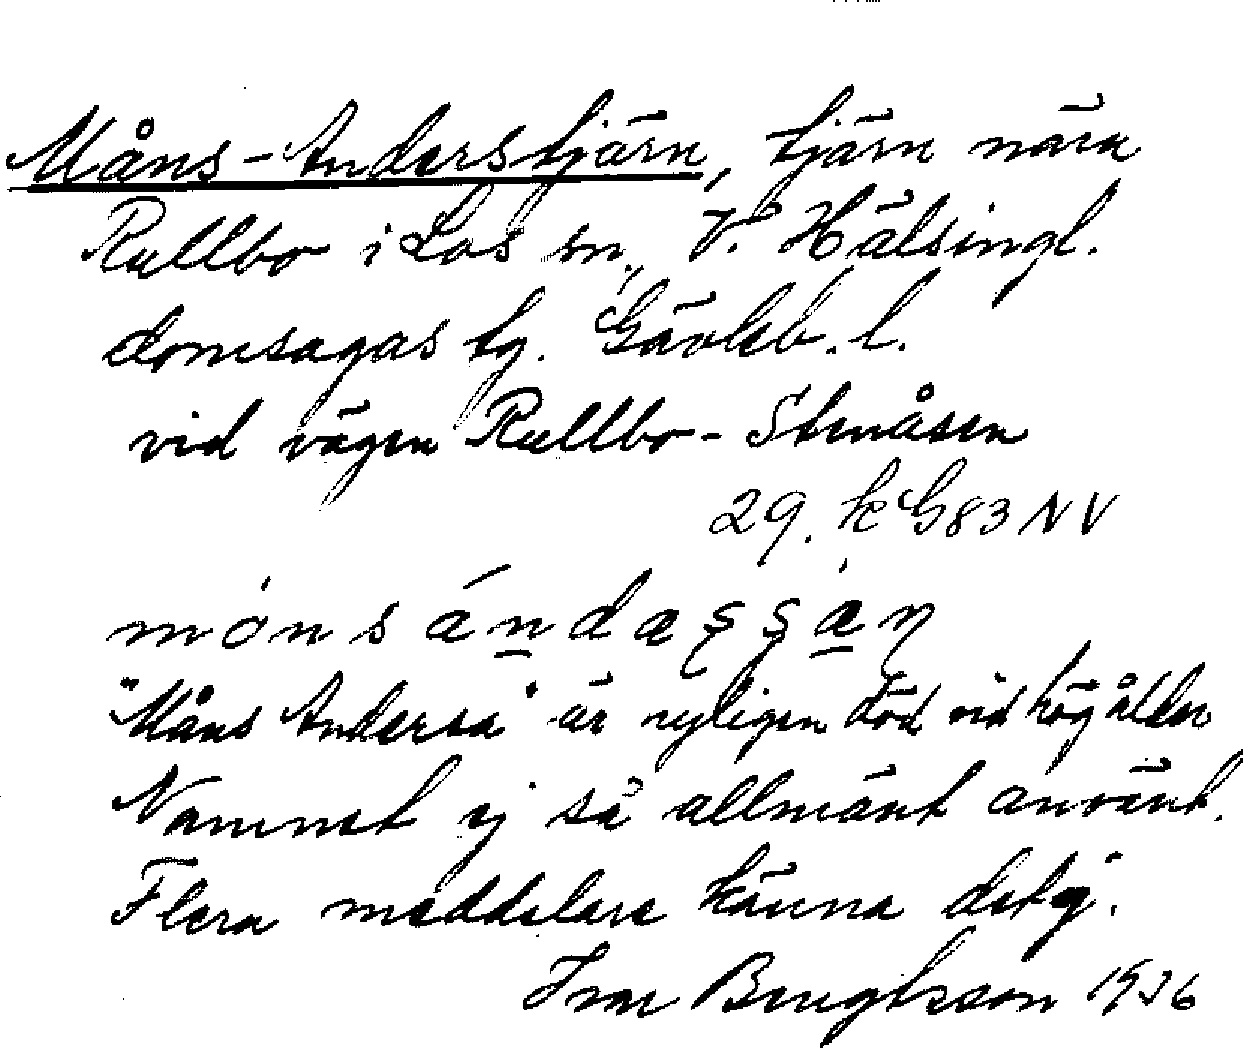 Måns-Anderstjärn, tjärn nära
Rullbo i Los sn, V. Hälsingl.
domsagas tg. Gävleb. l.
vid vägen Rullbo - Stenåsen
29. k G83 NV
móns ánda
"Måns Andersa" är nyligen död vid hög ålder
Namnet ej så allmänt använt.
Flera meddelare känna det ej.
Ivar Bengtsson 1936